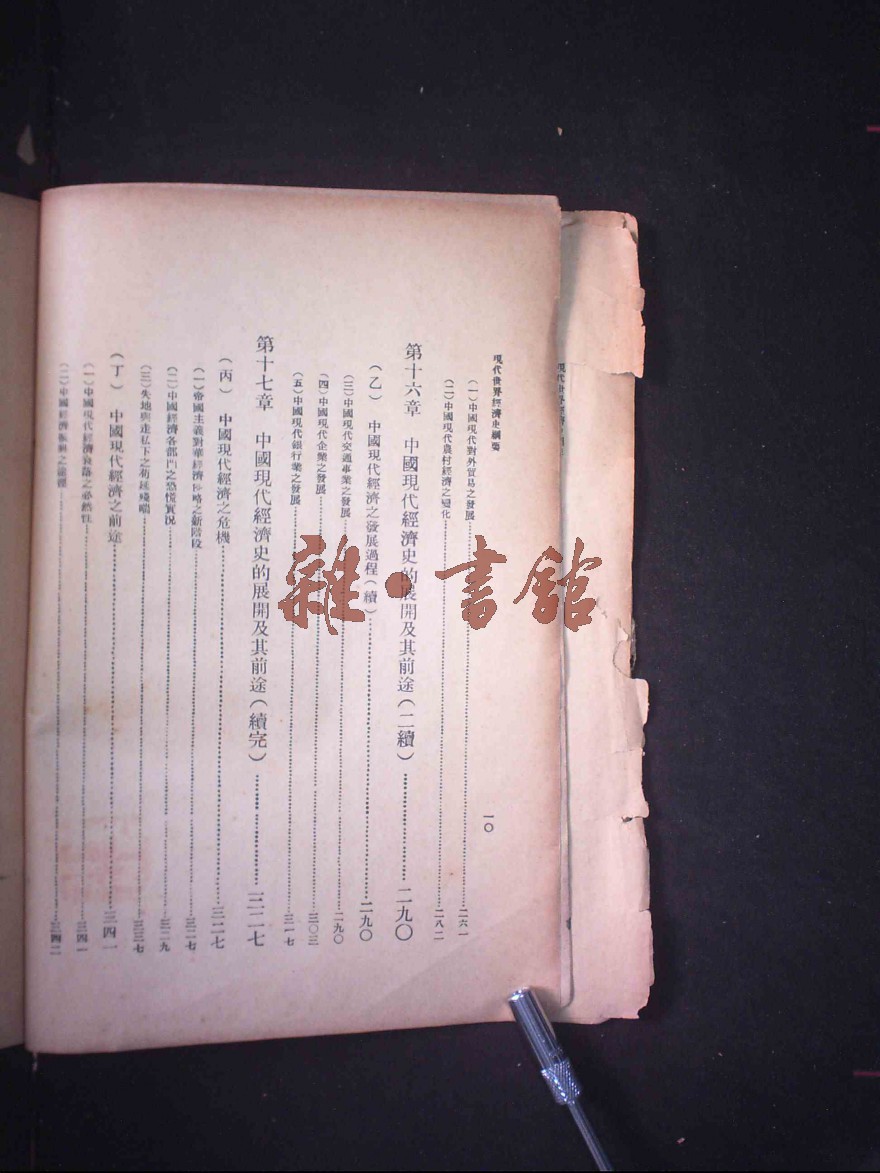 現代世界經濟史綱要
一〇
(一)中國現代對外貿易之發展……二六一
(二)中國現代農村經濟之變化……二八二
第十六章 中國現代經濟史的展開及其前途(二續)……二九〇
(乙) 中國現代經濟之發展過程(續)……二九〇
(三)中國現代交通事業之發展……二九〇
(四)中國現代企業之發展……三〇三
(五)中國現代銀行業之發展……三一七
第十七章 中國現代經濟史的展開及其前途(續完)……三二七
(丙) 中國現代經濟之危機……三二七
(一)帝國主義對華經濟侵略之新階段……三二七
(二)中國經濟各部門之恐慌實況……三二九
(三)失地與走私下之苟延殘喘……三三七
(丁) 中國現代經濟之前途……三四一
(一)中國現代經濟衰落之必然性……三四一
(二)中國經濟振興之途徑……三四二
雜·書館